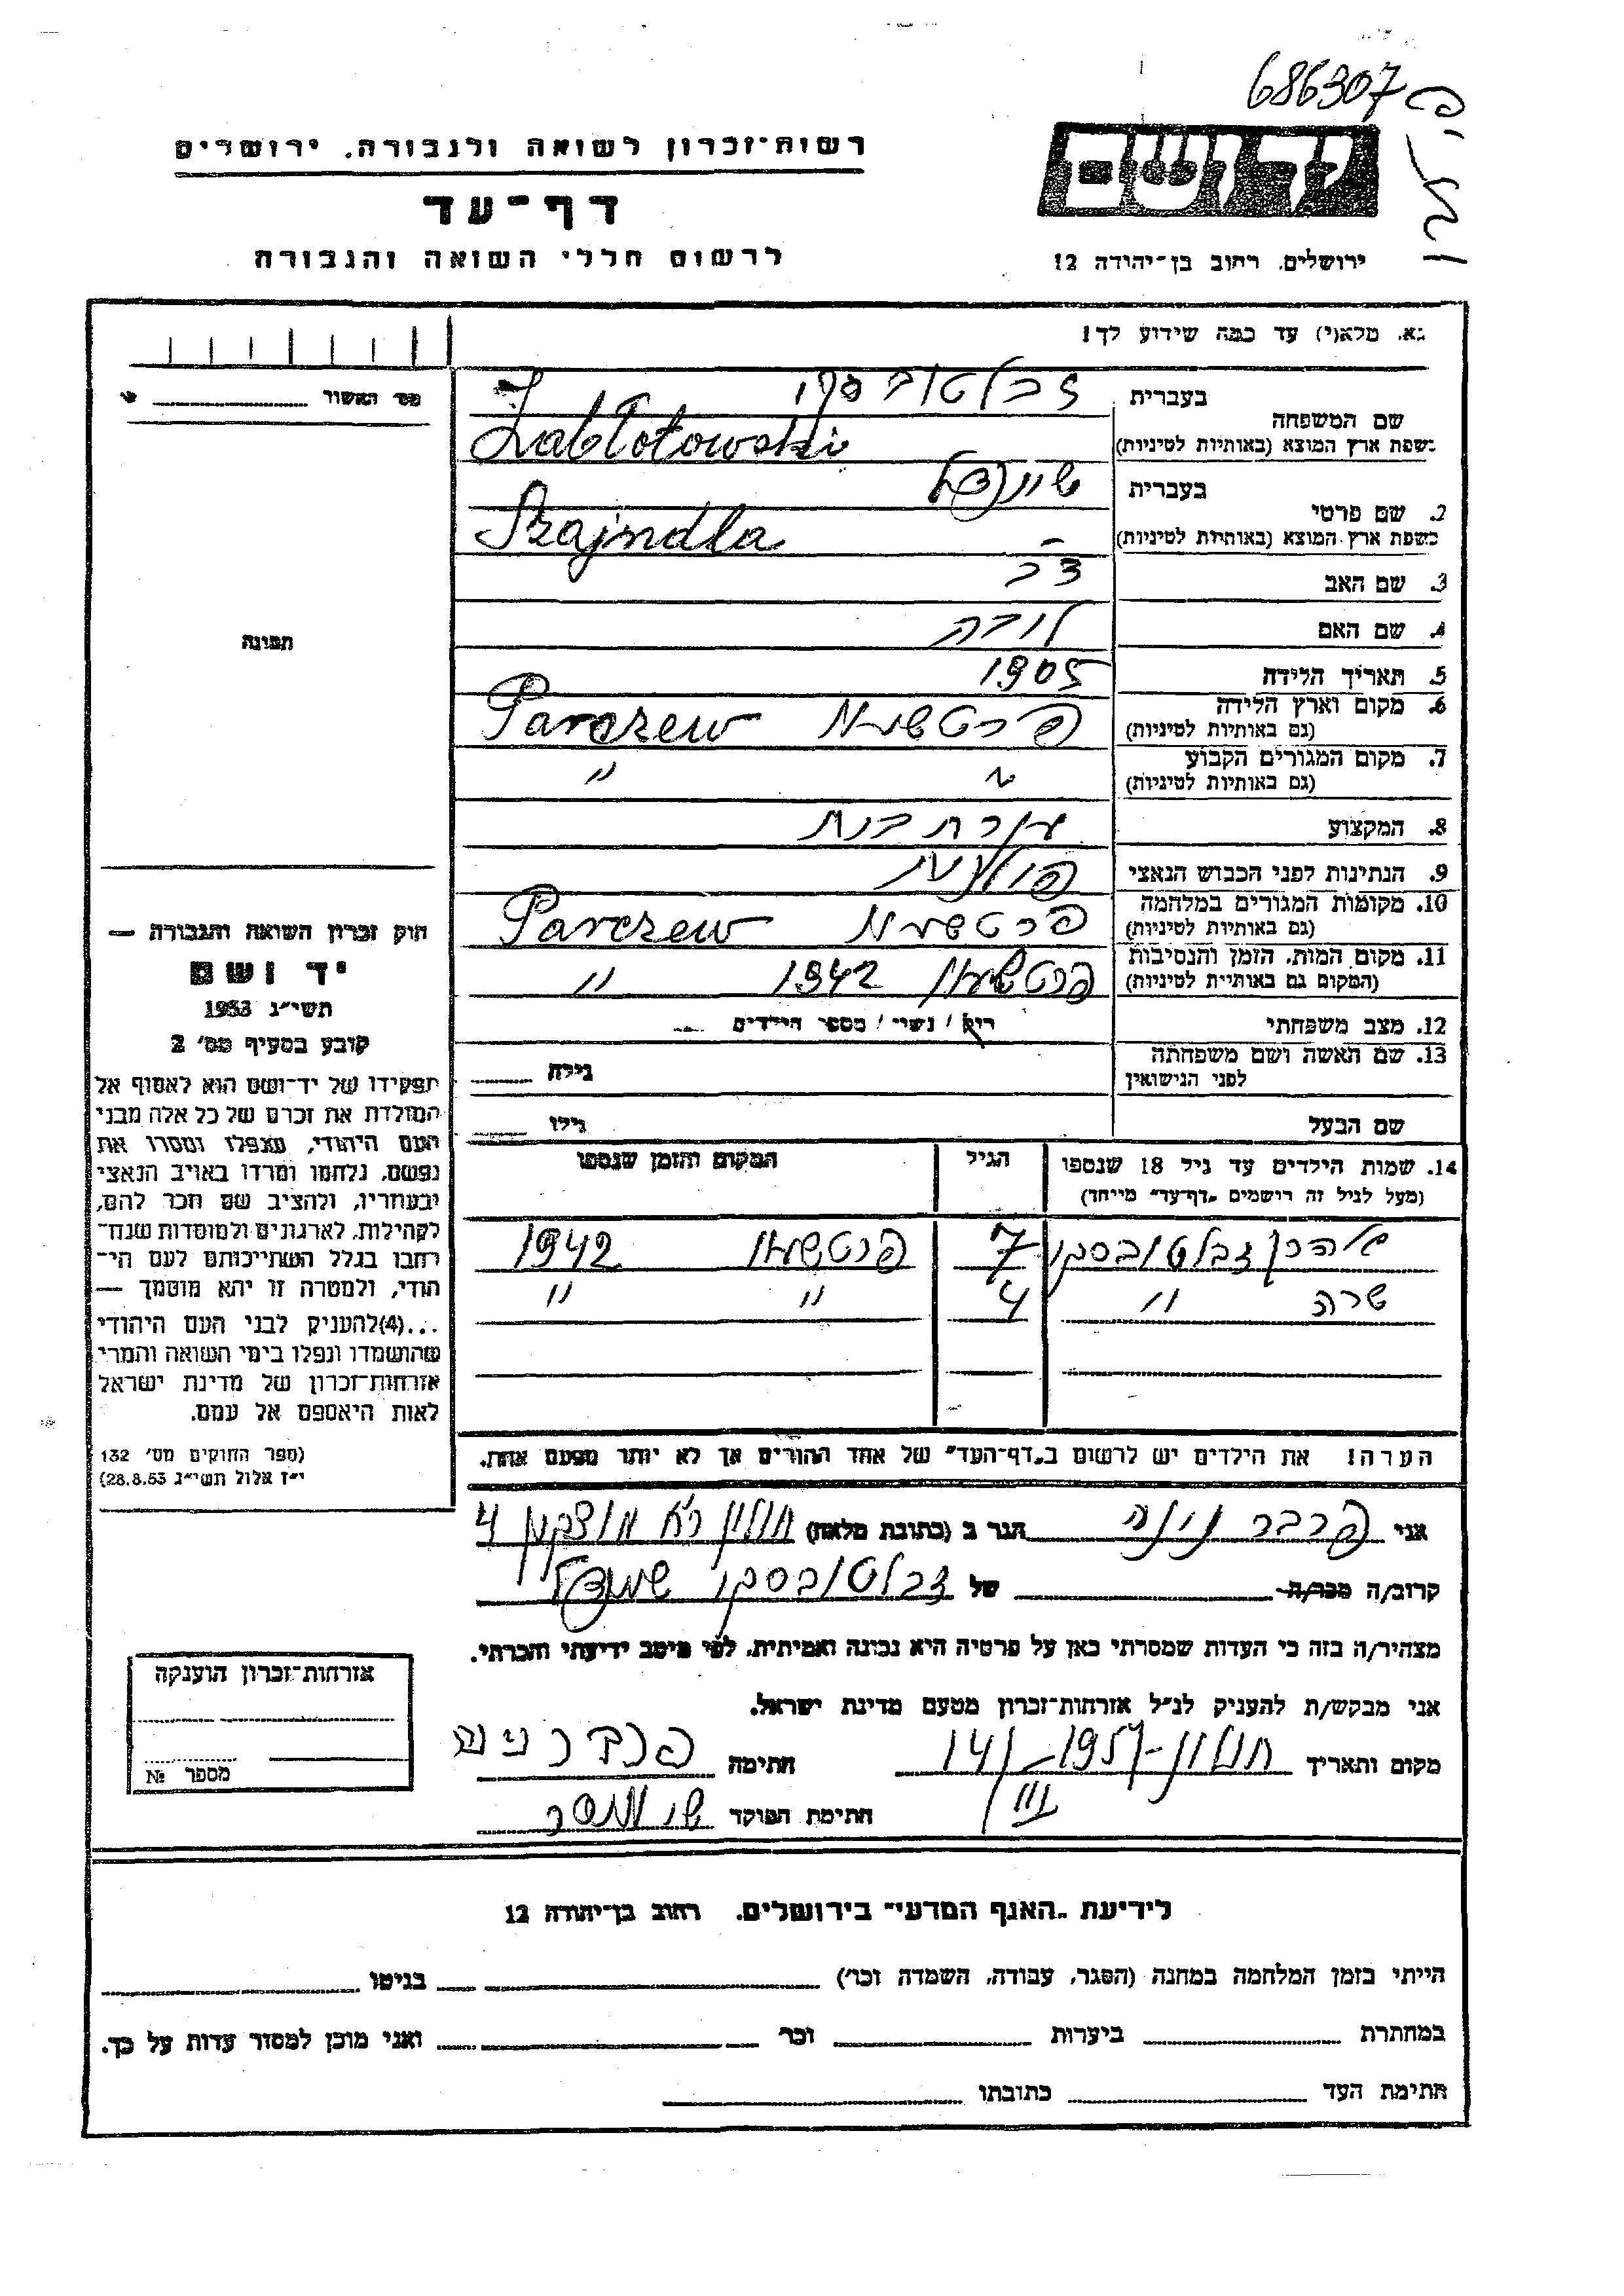 686307
רשות־זכרון לשואה ולגבורה. ירושלים
יד ושם
דף־עד
לרשום חללי השואה והגבורה
ירושלים. רחוב בן־יהודה 12
נא. מלא(י) עד כמה שידוע לך!
מס׳ האשור
שם המשפחה
בעברית
זבלטובסקי
בשפת ארץ המוצא (באותיות לטיניות)
Zabłotowski
2. שם פרטי
בעברית
שיינדל
בשפת ארץ המוצא (באותיות לטיניות)
Szajndla
3. שם האב
4. שם האם
תמונה
5. תאריך הלידה 1905
6. מקום וארץ הלידה
(גם באותיות לטיניות)
Parczew
7. מקום המגורים הקבוע
(גם באותיות לטיניות)
" "
8. המקצוע
עקרת בית
9. הנתינות לפני הכבוש הנאצי
פולנית
10. מקומות המגורים במלחמה
(גם באותיות לטיניות)
Parczew
11. מקום המות. הזמן והנסיבות
(המקום גם באותיות לטיניות)
1942 "
12. מצב משפחתי רוק / נשוי / מספר הילדים
13. שם האשה ושם משפחתה
לפני הנישואין
גילה
שם הבעל גילו
14. שמות הילדים עד גיל 18 שנספו הגיל המקום והזמן שנספו
(מעל לגיל זה רושמים „דף־עד” מייחד)
זבלטובסקי 7 1942
שרה " 4 " "
חוק זכרון השואה והגבורה —
יד ושם
תשי״ג 1953
קובע בסעיף מס׳ 2
תפקידו של יד־ושם הוא לאסוף אל
המולדת את זכרם של כל אלה מבני
העם היהודי, שנפלו ומסרו את
נפשם, נלחמו ומרדו באויב הנאצי
ובעוזריו, ולהציב שם וזכר להם,
לקהילות, לארגונים ולמוסדות שנח־
רבו בגלל השתייכותם לעם הי־
הודי, ולמטרה זו יהא מוסמך —
...(4)להעניק לבני העם היהודי
שהושמדו ונפלו בימי השואה והמרי
אזרחות־זכרון של מדינת ישראל
לאות היאספם אל עמם.
(ספר החוקים מס׳ 132
י״ז אלול תשי״ג 28.8.53)
הערה! את הילדים יש לרשום ב„דף־העד” של אחד ההורים אך לא יותר מפעם אחת.
אני פרבר הגר ב (כתובת מלאה) חולון 4
קרוב/ה מכר/ה של זבלטובסקי שיינדל
מצהיר/ה בזה כי העדות שמסרתי כאן על פרטיה היא נכונה ואמיתית. לפי מיטב ידיעתי והכרתי.
אני מבקש/ת להעניק לנ״ל אזרחות־זכרון מטעם מדינת ישראל.
מקום ותאריך חולון חתימה
חתימת הפוקד
אזרחות־זכרון הוענקה
מספר №
לידיעת „האגף המדעי” בירושלים. רחוב בן־יהודה 12
הייתי בזמן המלחמה במחנה (הסגר, עבודה, השמדה וכו׳) בגיטו
במחתרת ביערות וכו׳ ואני מוכן למסור עדות על כך.
חתימת העד כתובתו